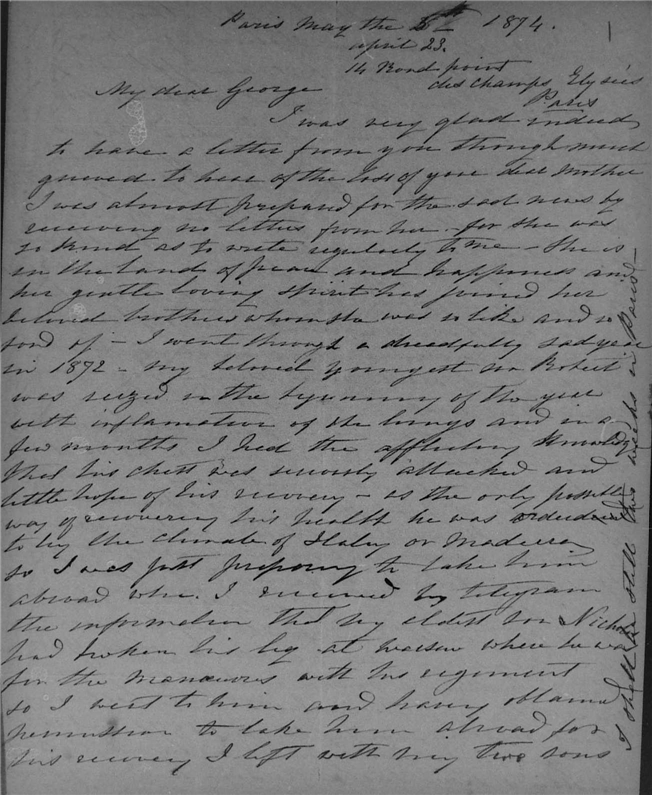 Paris May the 5th 1874.
april 23.
14 Rond point
des champs Elysées
Paris
My dear George
I was very glad indeed
to have a letter from you though much
grieved to hear of the loss of your dear Mother
I was almost prepared for the sad news by
receiving no letters from her - for she was
so kind as to write regularly to me - She is
in the land of peace and happiness and
her gentle loving spirit has joined her
beloved brothers whom she was so like and so
fond of - I went through a dreadfully sad year
in 1872 - my beloved youngest son Robert
was seized in the beginning of the year
with inflamation of the lungs and in a
few months I had the afflicting knowledge
that his chest was seriously attacked and
little hope of his recovery - as the only possible
way of recovering his health he was ordered
to try the climate of Italy or Madeira
so I was just preparing to take him
abroad when I received by telegram
the information that my eldest son Nichol
had broken his leg at Warsaw where he was
for the manœuvres with his regiment
so I went to him and having obtained
permission to take him abroad for
his recovery I left with my two sons
I shall be still this weeks in Paris -